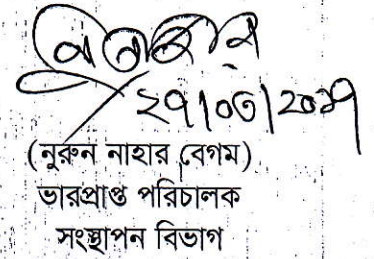 ২৭/০৩/২০১৭
(নুরুন নাহার বেগম)
ভারপ্রাপ্ত পরিচালক
সংস্থাপন বিভাগ